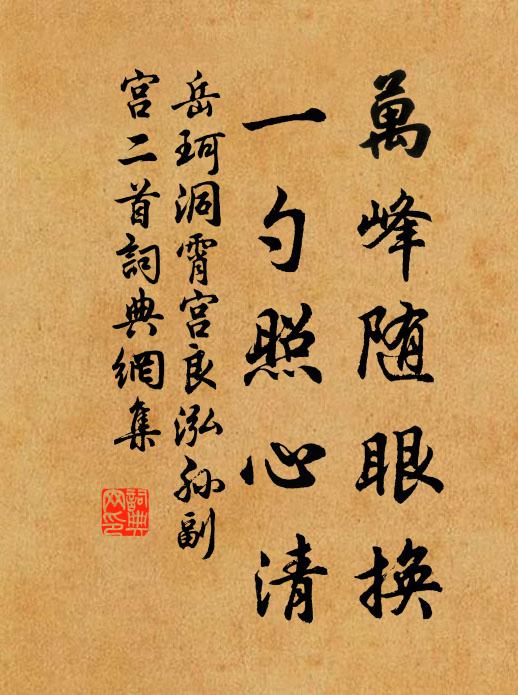 萬峰随眼換
一勺照心清
岳珂洞霄宮良泓孙副
宮二首詞典網集
詞典网印